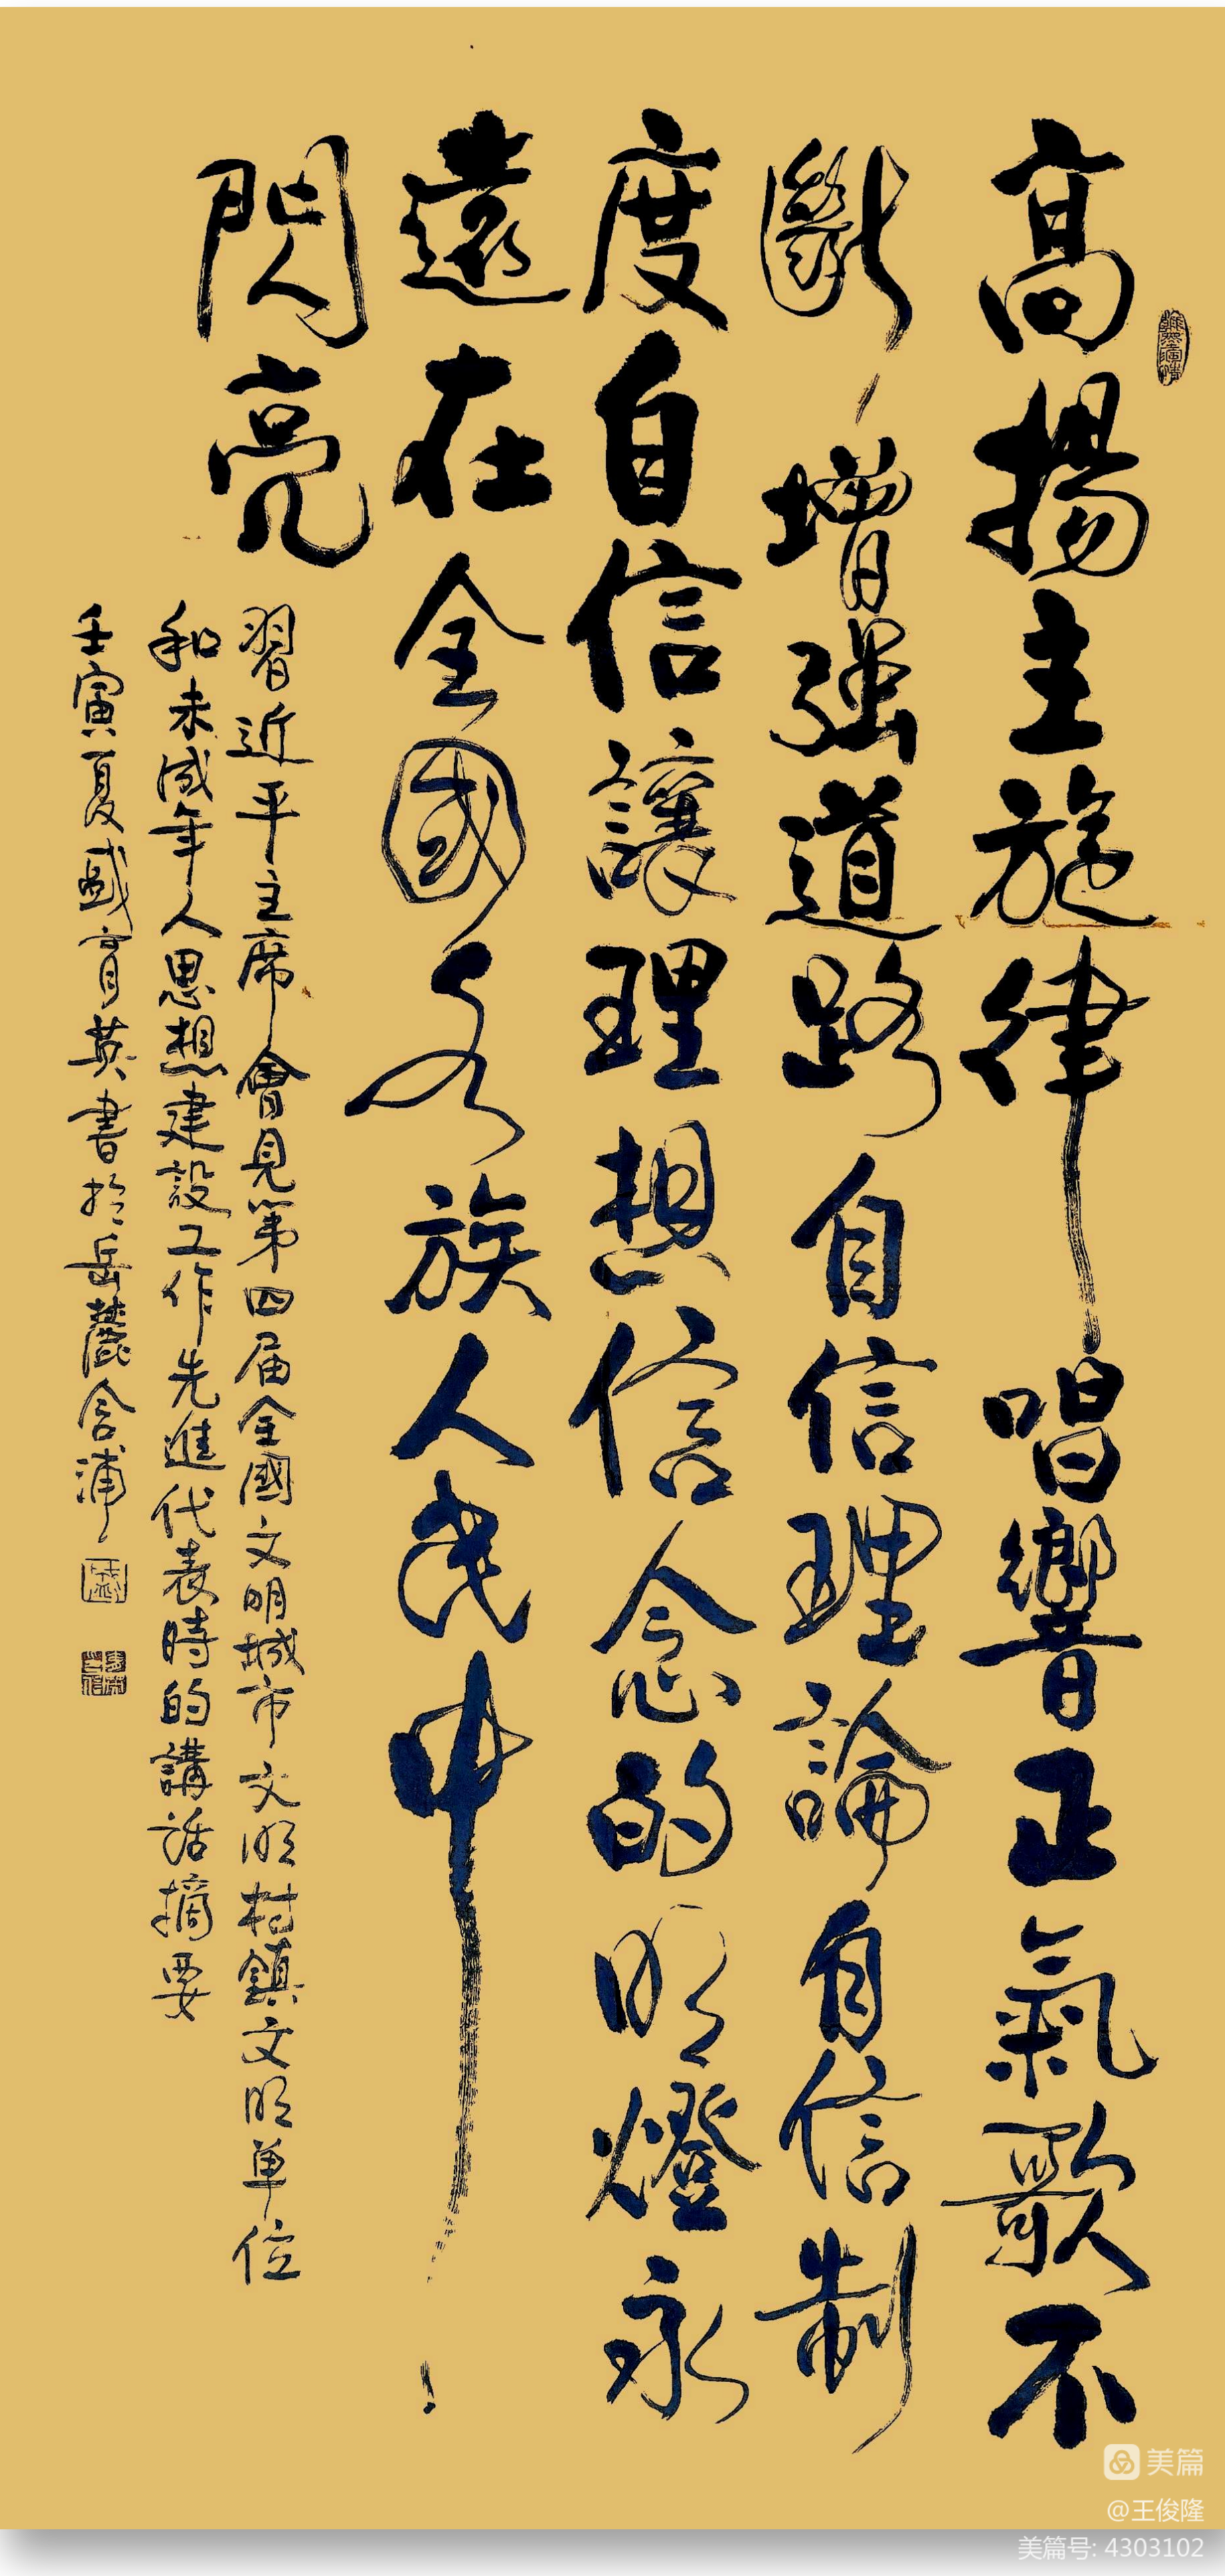 高揚主旋律唱響正氣歌不
斷增強道路自信理論自信制
度自信讓理想信念的明燈永
遠在全國各族人民中
閃亮
習近平主席會見第四届全國文明城市文明村鎮文明单位
和未成年人思想建設工作先進代表時的講話摘要
壬寅夏盛育英書於岳麓含浦
美篇
@王俊隆
美篇号: 4303102